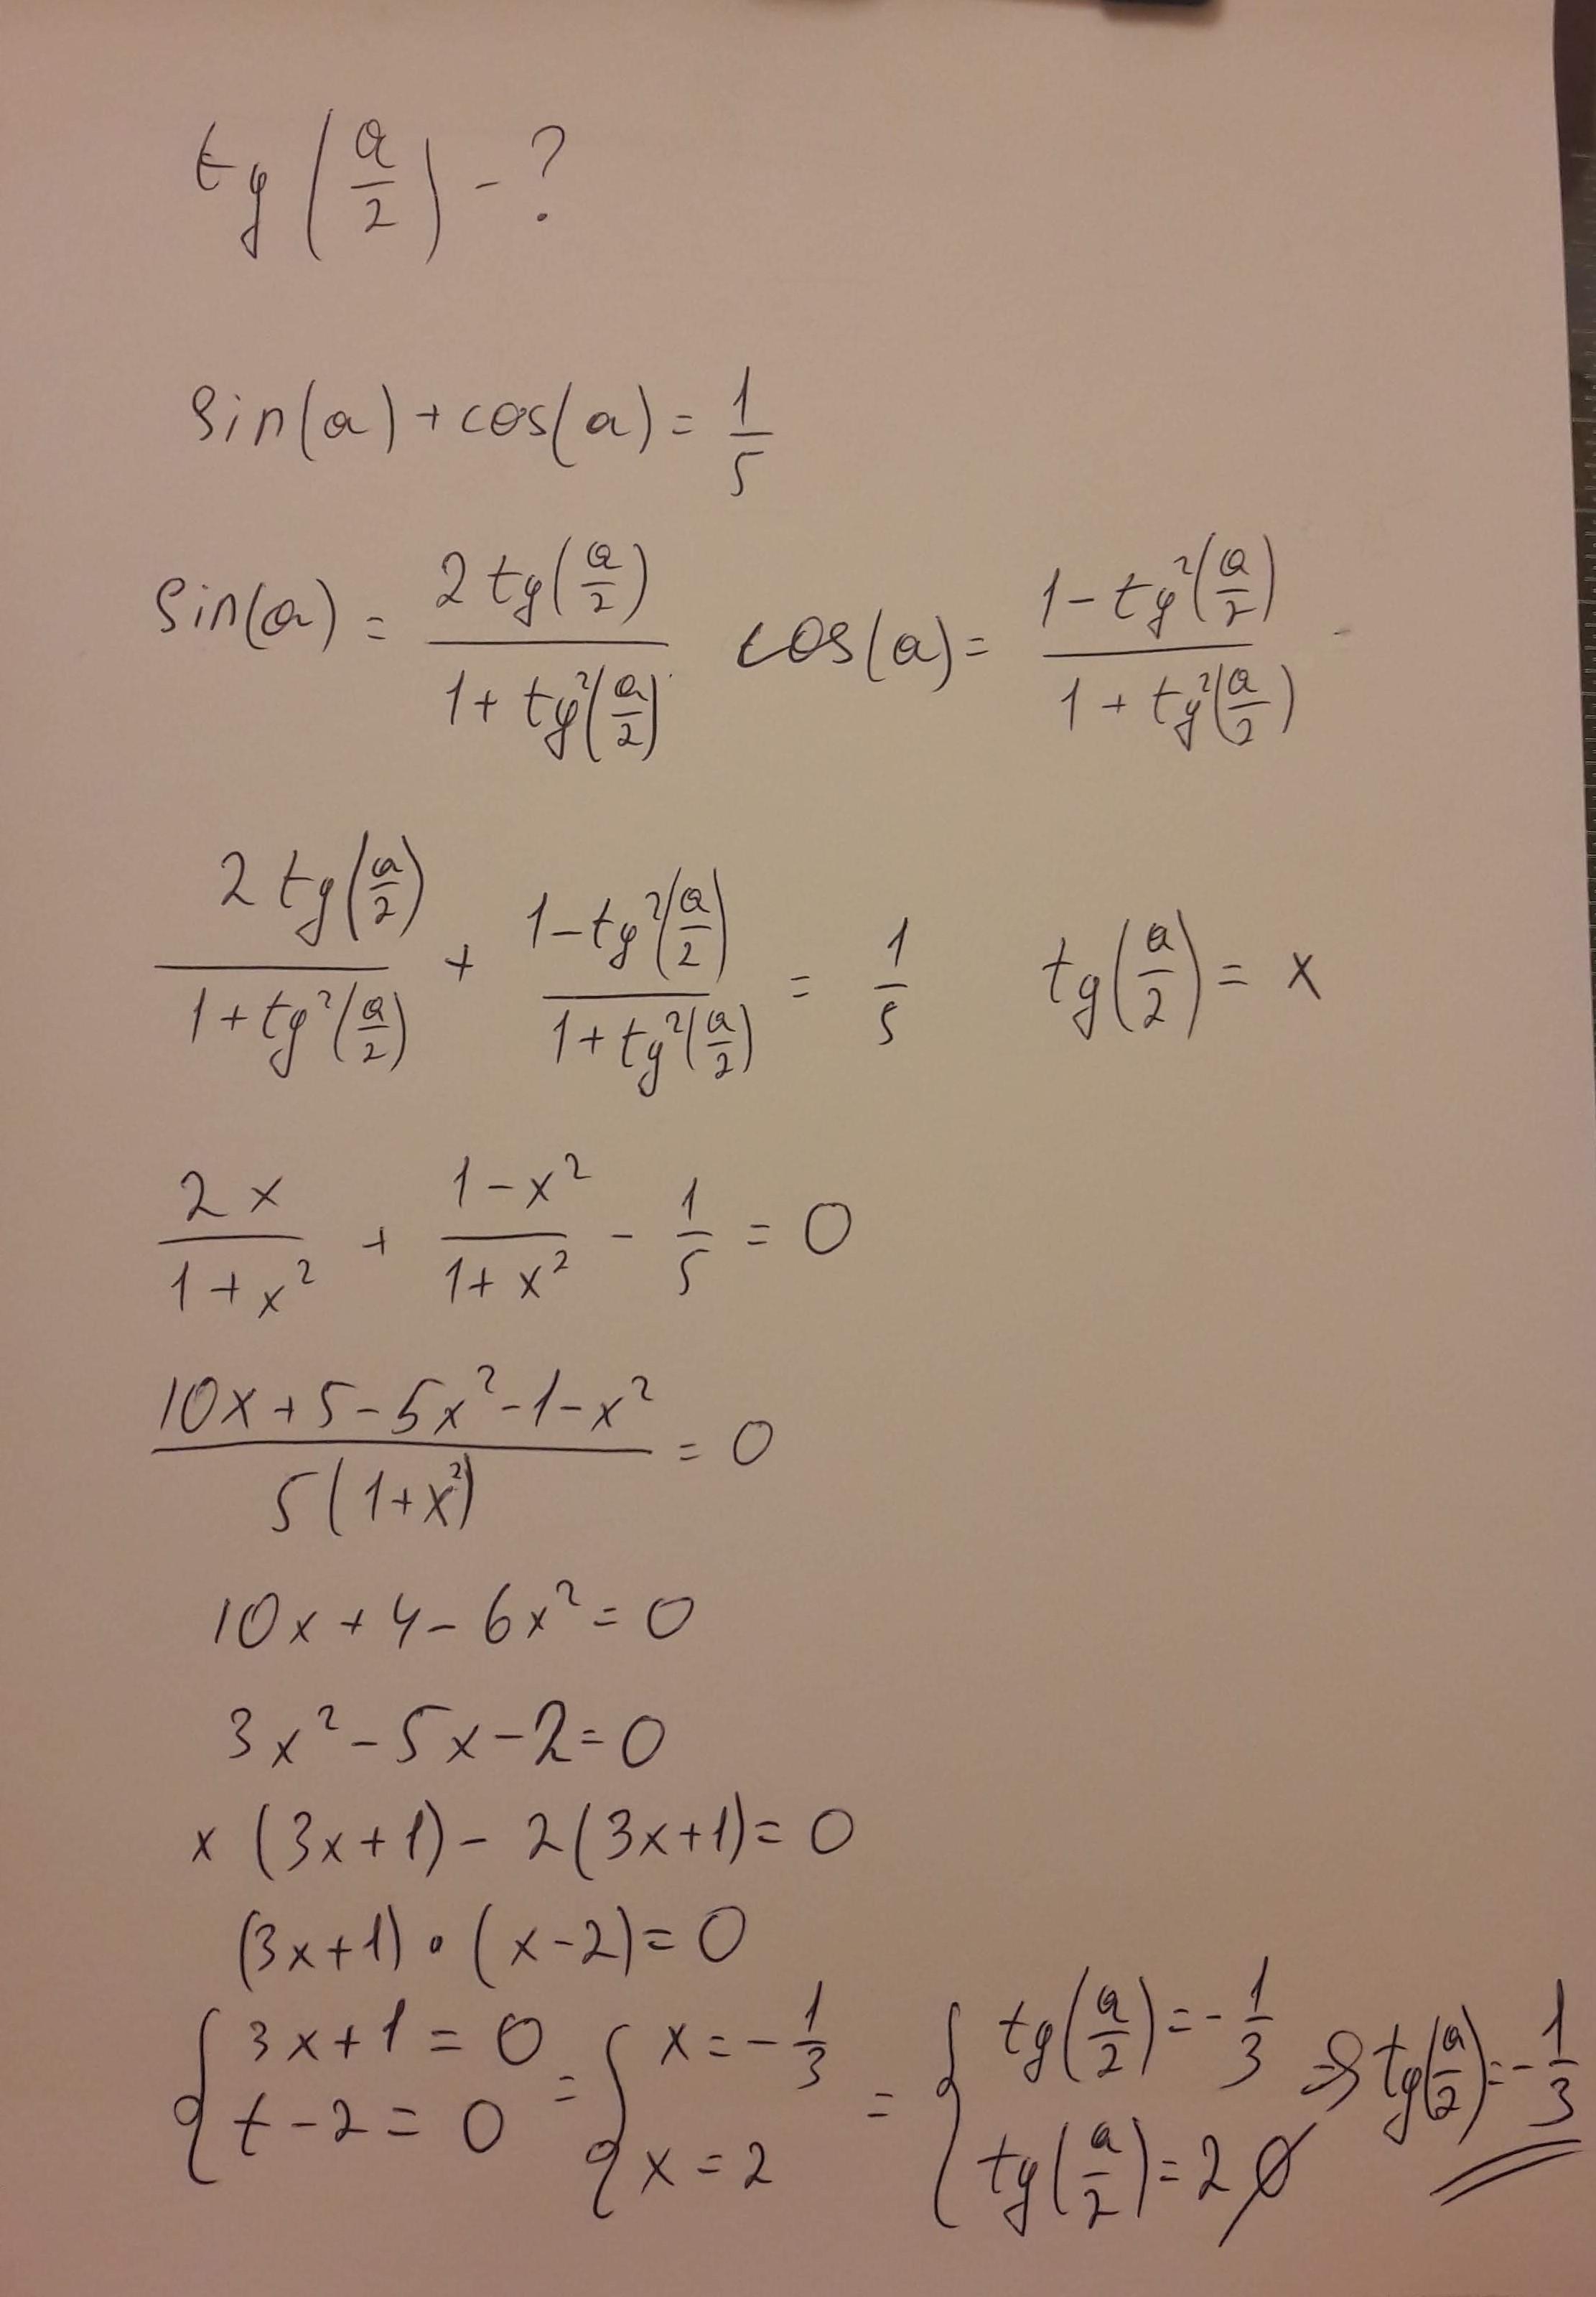 tg(a/2) - ?
sin(a) + cos(a) = 1/5
sin(a) = 2tg(a/2) / 1 + tg²(a/2)   cos(a) = 1 - tg²(a/2) / 1 + tg²(a/2)
2tg(a/2) / 1 + tg²(a/2) + 1 - tg²(a/2) / 1 + tg²(a/2) = 1/5   tg(a/2) = x
2x / 1 + x² + 1 - x² / 1 + x² - 1/5 = 0
10x + 5 - 5x² - 1 - x² / 5(1 + x²) = 0
10x + 4 - 6x² = 0
3x² - 5x - 2 = 0
x(3x + 1) - 2(3x + 1) = 0
(3x + 1) · (x - 2) = 0
{ 3x + 1 = 0 = { x = -1/3 = { tg(a/2) = -1/3 => tg(a/2) = -1/3
t - 2 = 0   x = 2   tg(a/2) = 2 ∅